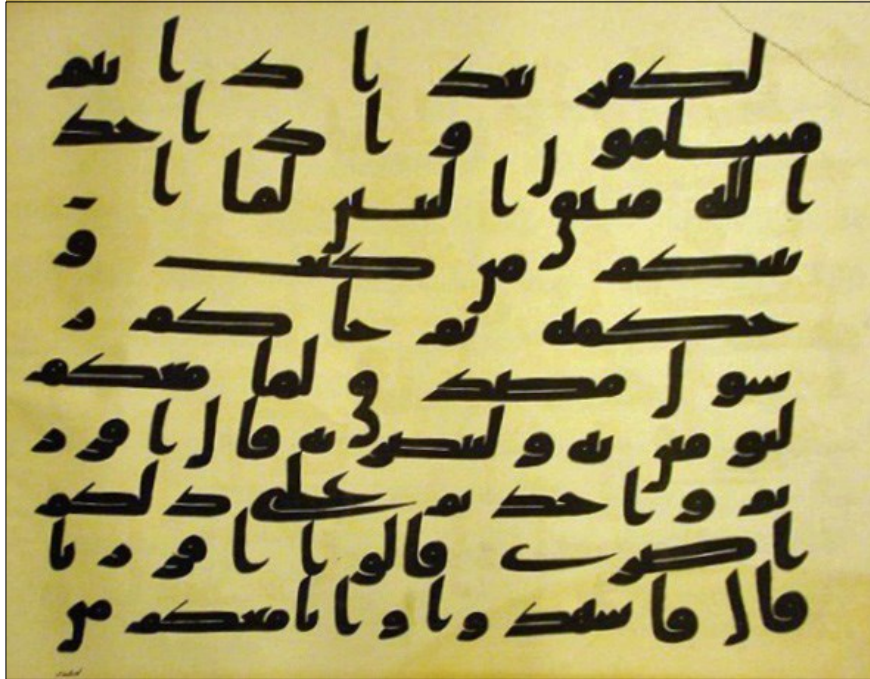 لكفر بعد اذ انتم
مسلمون واذ اخذ
الله ميثق النبين لما ات
يتكم من كتب و
حكمه ثم جاكم ر
سول مصدق لما معكم
لتومنن به ولتنصرنه قال اقرر
تم واخذتم على ذلكم
اصرى قالوا اقررنا
قال فاشهدوا وانا معكم من